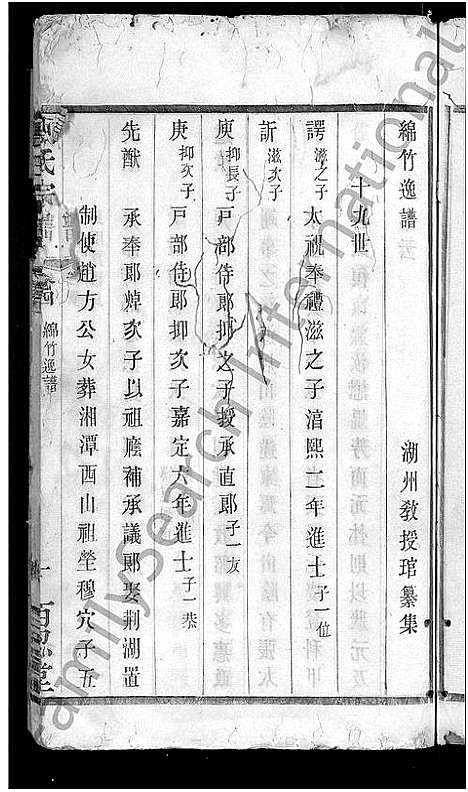 綿竹逸譜 湖州教授琯纂集
十九世
諤 滋之子 太祝奉禮滋之子淳熙二年進士 子一位
訢 滋次子
庾 抑長子 戸部侍郎抑之子授承直郎 子一友
庚 抑次子 戸部侍郎抑次子嘉定六年進士 子一恭
先猷 承奉郎焯次子以祖廕補承議郎娶荆湖置
制使趙方公女葬湘潭西山祖塋穆穴子五
氏宗譜
綿竹逸譜
FamilySearch International